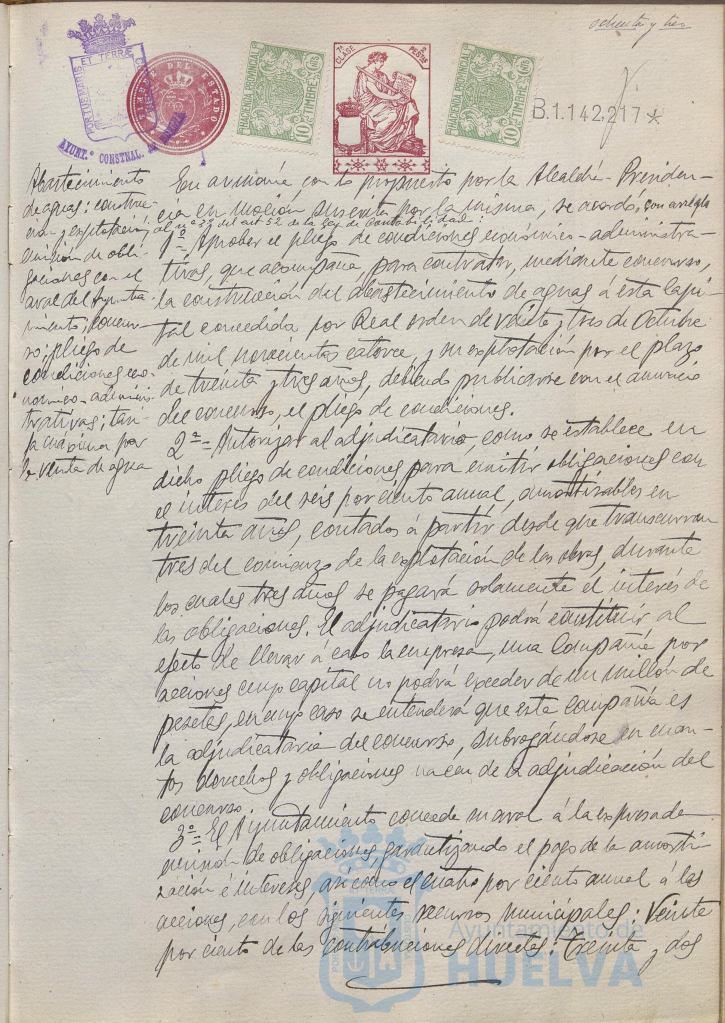 ochenta y tres
PORTUS MARIS ET TERRÆ CUSTODIA
AYUNT.º CONSTNAL.
TIMBRE DEL ESTADO
HACIENDA PROVINCIAL
TIMBRE
10 CTS
7ª CLASE
2 PESTAS
HACIENDA PROVINCIAL
TIMBRE
10 CTS
B.1.142,217*
Abastecimiento
de aguas; construc-
ción y explotación;
emisión de obli-
gaciones con el
aval del Ayunta-
miento; concur-
so; pliego de
condiciones eco-
nómico-adminis-
trativas; tari-
fa máxima por
la venta de agua
En armonía con lo propuesto por la Alcaldía-Presiden-
cia en moción suscrita por la misma, se acordó, con arreglo
al nº 39 del artº 52 de la Ley de Contabilidad:
1º= Aprobar el pliego de condiciones económico-administra-
tivas, que acompaña, para contratar, mediante concurso,
la construcción del abastecimiento de aguas á esta Capi-
tal concedida por Real orden de veinte y tres de Octubre
de mil novecientos catorce, y su explotación por el plazo
de treinta y tres años, debiendo publicarse con el anuncio
del concurso, el pliego de condiciones.
2º= Autorizar al adjudicatario, como se establece en
dicho pliego de condiciones para emitir obligaciones con
el interés del seis por ciento anual, amortizables en
treinta años, contados á partir desde que transcurran
tres del comienzo de la explotación de las obras, durante
los cuales tres años se pagará solamente el interés de
las obligaciones. El adjudicatario podrá constituir al
efecto de llevar á cabo la empresa, una Compañía por
acciones cuyo capital no podrá exceder de un millón de
pesetas, en cuyo caso se entenderá que esta compañía es
la adjudicataria del concurso, subrogándose en cuan-
tos derechos y obligaciones nacen de la adjudicación del
concurso.
3º= El Ayuntamiento concede su aval á la expresada
emisión de obligaciones, garantizando el pago de la amorti-
zación é intereses, así como el cuatro por ciento anual á las
acciones, con los siguientes recursos municipales: Veinte
por ciento de las contribuciones directas: Treinta y dos
Ayuntamiento de
HUELVA